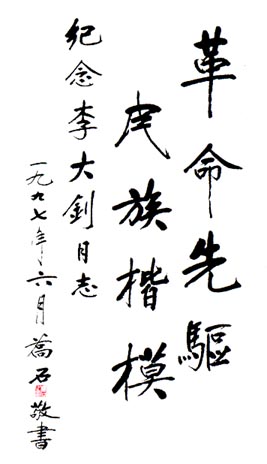 革命先驅
民族楷模
紀念李大釗同志
一九九七年六月喬石敬書